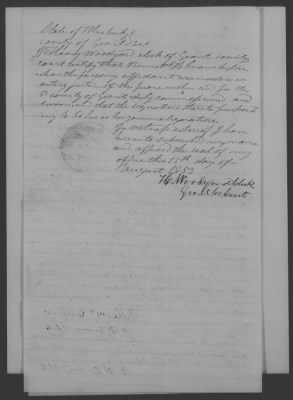 State of Kentucky
County of Grant Sct
I Henry Woodyard clerk of Grant county
court certify that Bennett B Evans before
whom the foregoing affidavit was made is an
acting justice of the peace within and for the
County of Grant duly commissioned and
sworn and that the signature thereto purport
ing to be his is his genuine signature
In witness whereof I have
hereunto subscribed my name
and affixed the seal of my
office this 15th day of
August 1853
H. Woodyard Clerk
Grant Co. Court